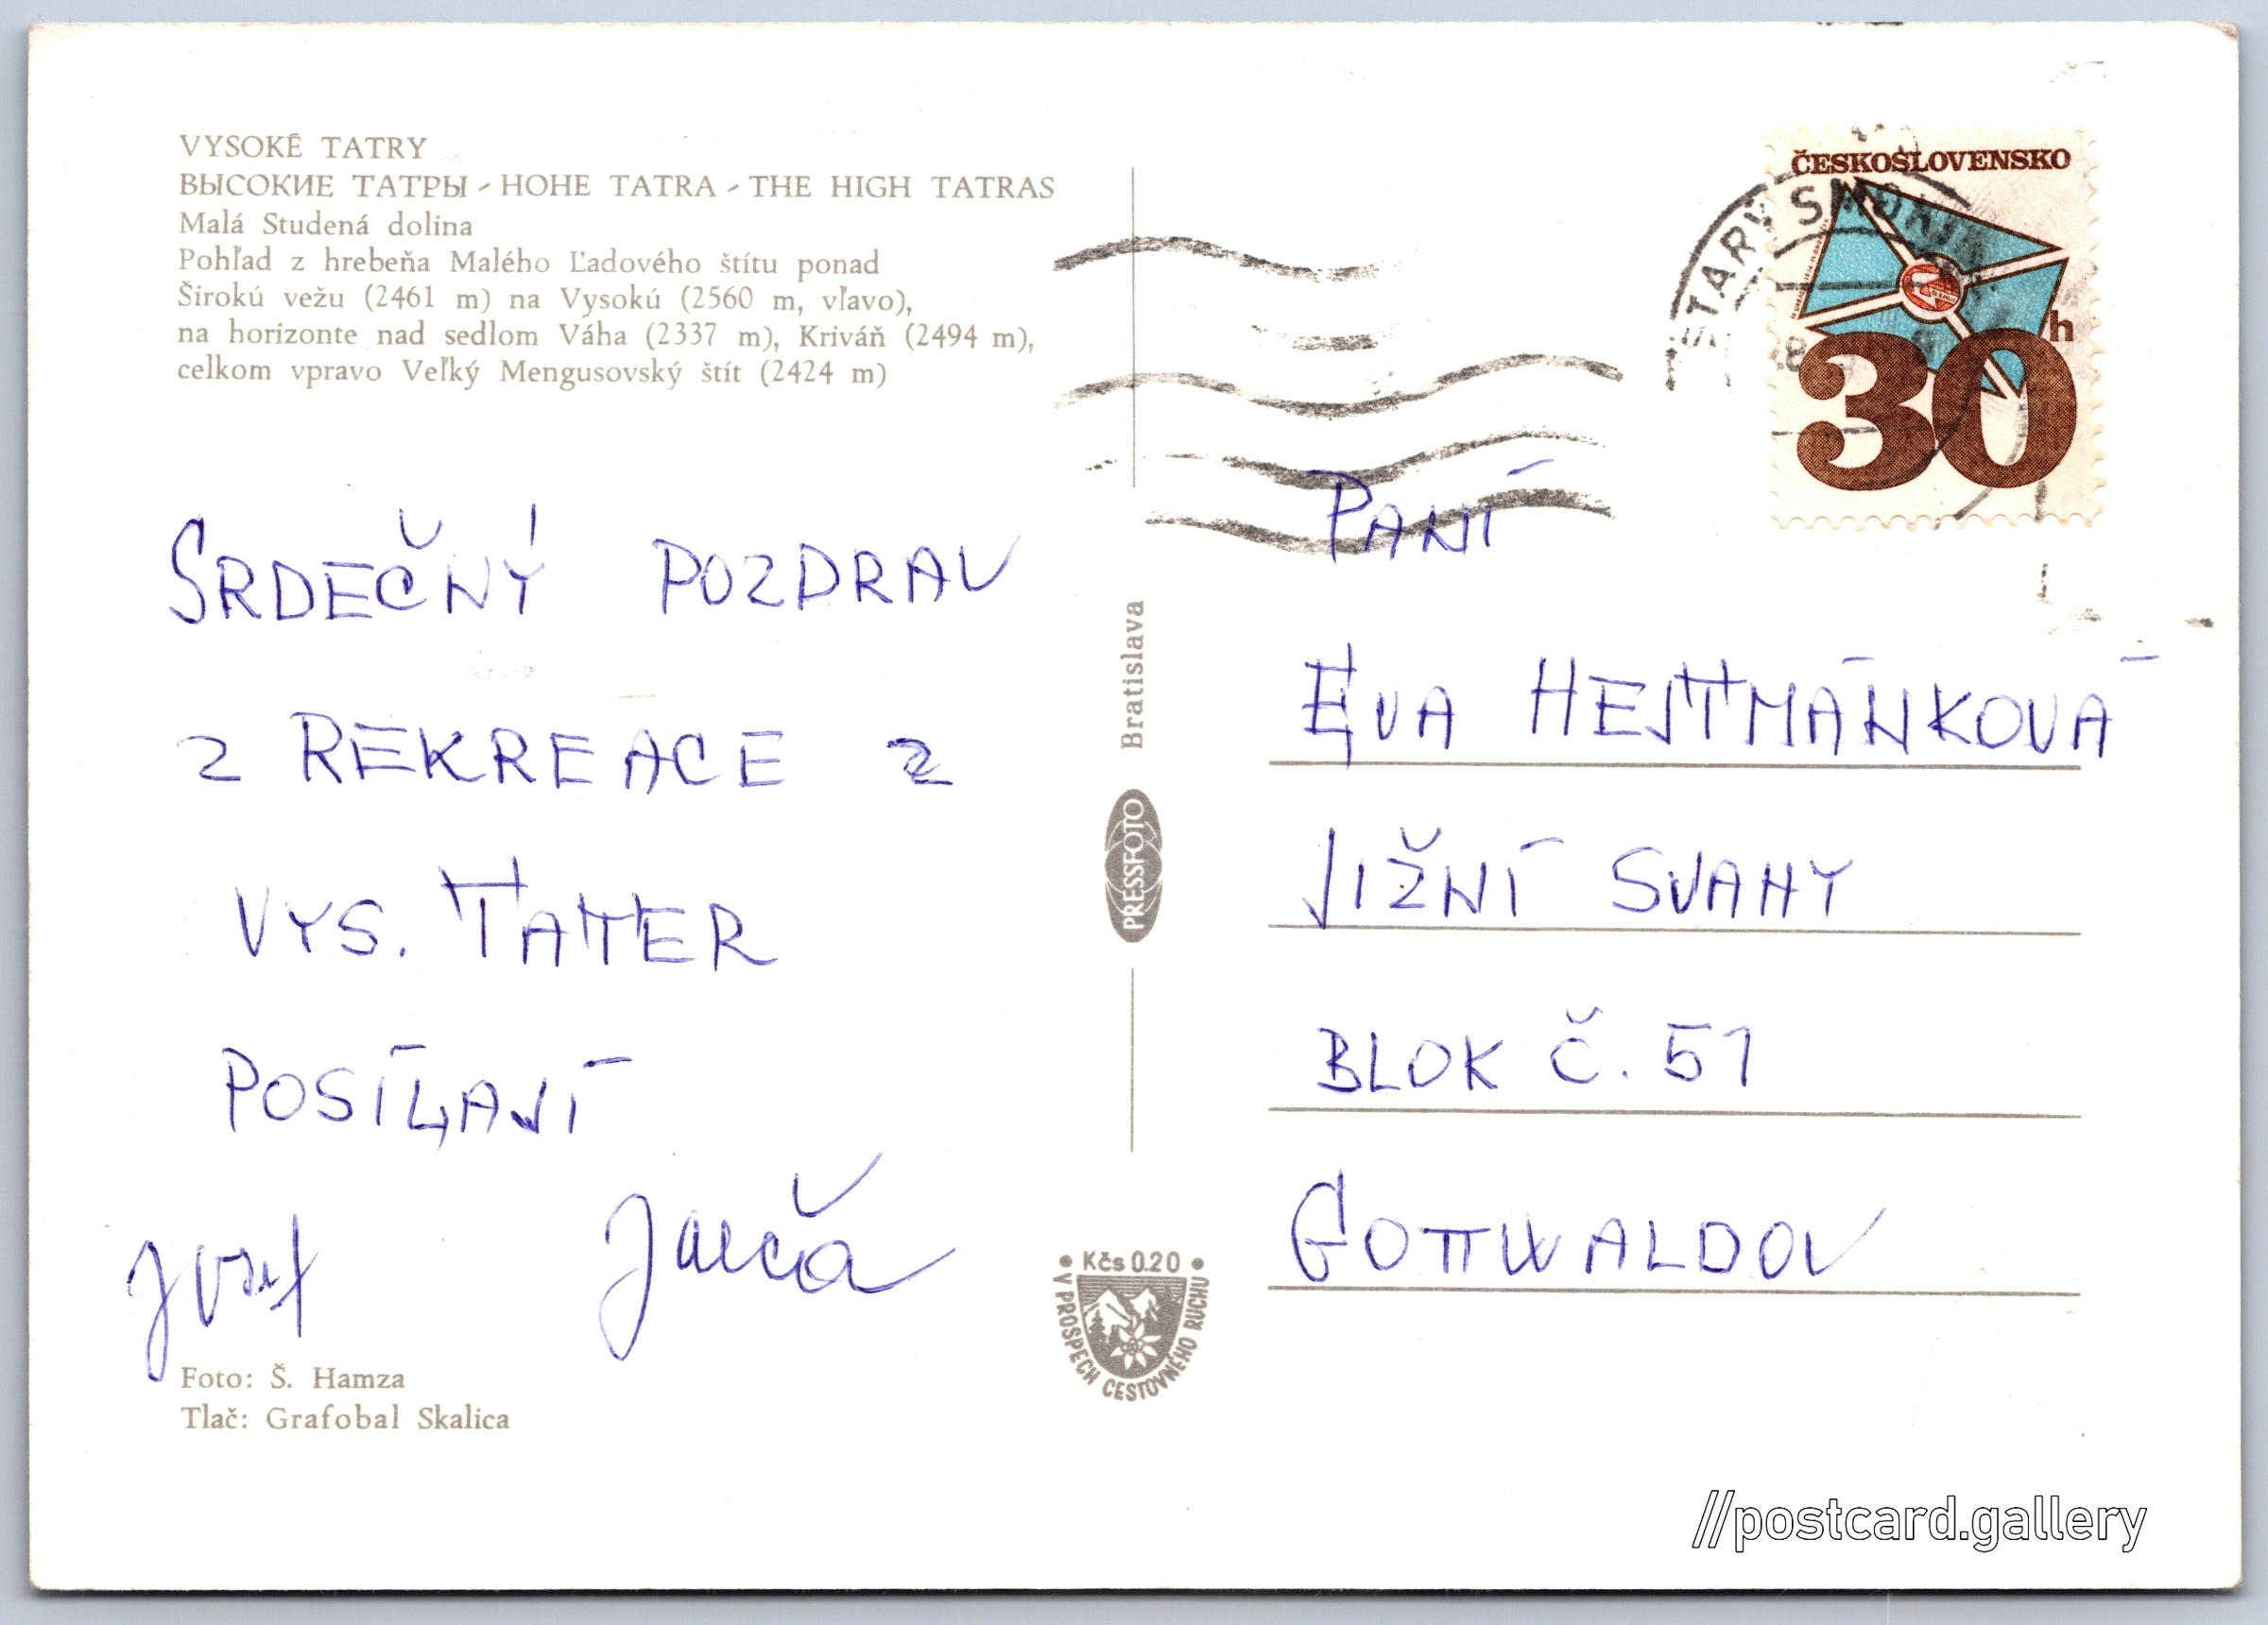 VYSOKÉ TATRY
ВЫСОКИЕ ТАТРЫ - HOHE TATRA - THE HIGH TATRAS
Malá Studená dolina
Pohľad z hrebeňa Malého Ľadového štítu ponad
Širokú vežu (2461 m) na Vysokú (2560 m, vľavo),
na horizonte nad sedlom Váha (2337 m), Kriváň (2494 m),
celkom vpravo Veľký Mengusovský štít (2424 m)
SRDEČNÝ POZDRAV
Z REKREACE Z
VYS. TATER
POSÍLAJÍ
Josef
Foto: Š. Hamza
Tlač: Grafobal Skalica
Bratislava
PRESSFOTO
Kčs 0.20
V PROSPECH CESTOVNÉHO RUCHU
ČESKOSLOVENSKO
30h
STARÝ
PANÍ
EVA HEJTMÁNKOVÁ
JIŽNÍ SVAHY
BLOK Č. 51
GOTTWALDOV
//postcard.gallery